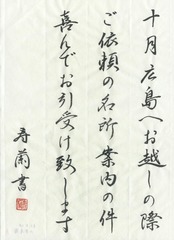 十月広島へお越しの際
ご依頼の名所案内の件
喜んでお引受け致します
寿蘭書